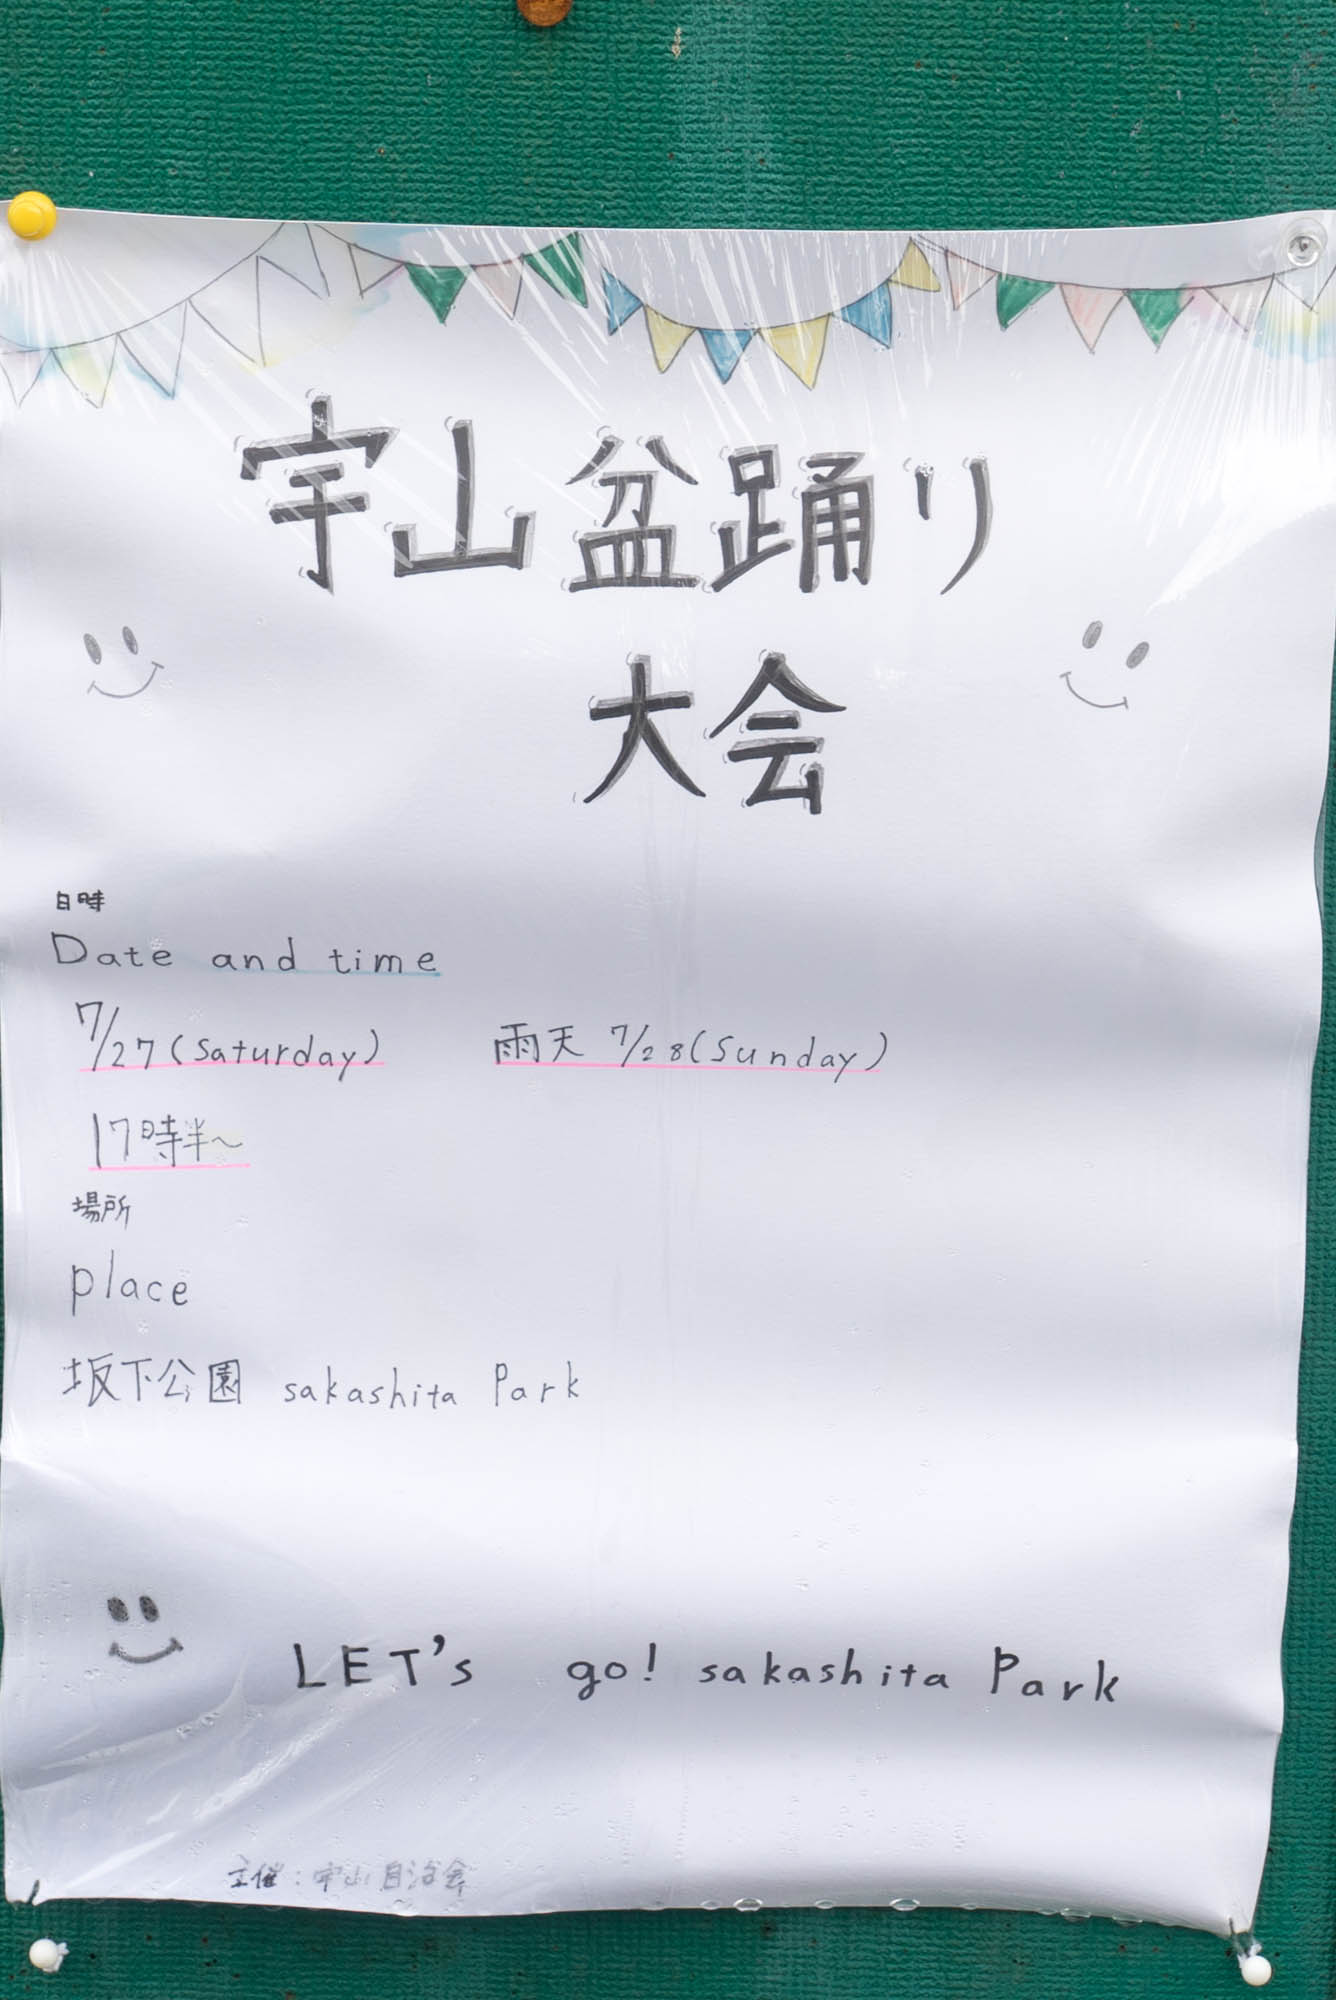 宇山盆踊り
大会
日時
Date and time
7/27(Saturday) 雨天 7/28(Sunday)
17時半〜
場所
place
坂下公園 sakashita Park
LET's go! sakashita Park
主催:宇山自治会